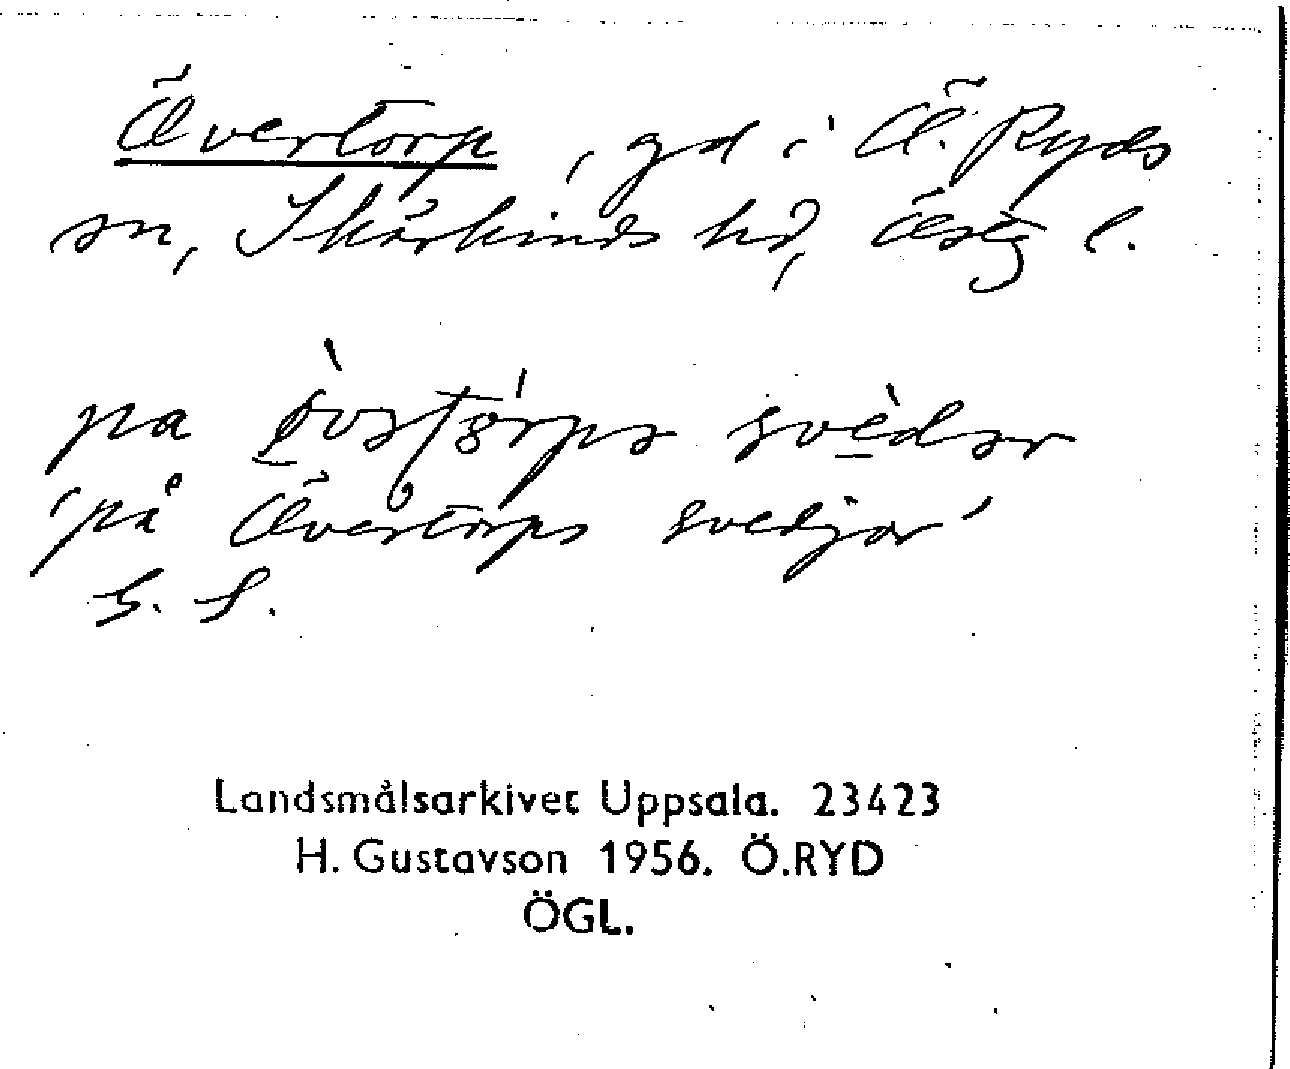 Övertorp, gd i Ö. Ryds
sn, Skärkinds hd, Östg l.
pa
'på Övertorps svedjor'
G. S.
Landsmålsarkivet Uppsala. 23423
H. Gustavson 1956. Ö.RYD
ÖGL.